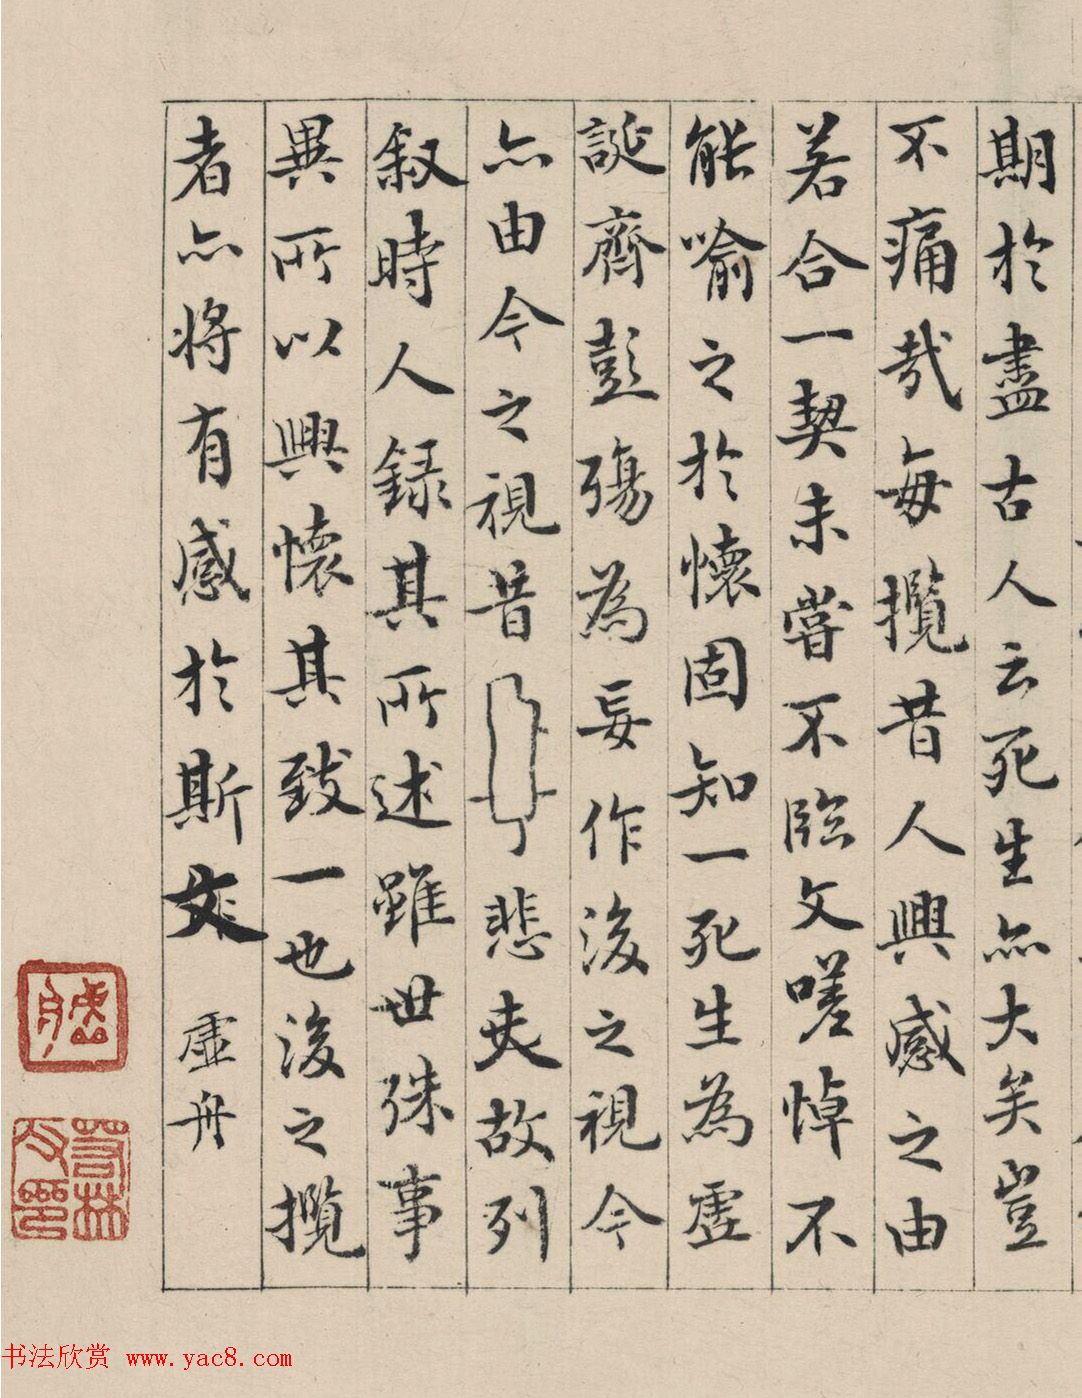 期於盡古人云死生亦大矣豈
不痛哉每攬昔人興感之由
若合一契未嘗不臨文嗟悼不
能喻之於懷固知一死生為虛
誕齊彭殤為妄作後之視今
亦由今之視昔悲夫故列
敘時人錄其所述雖世殊事
異所以興懷其致一也後之攬
者亦將有感於斯文
虛舟
书法欣赏 www.yac8.com